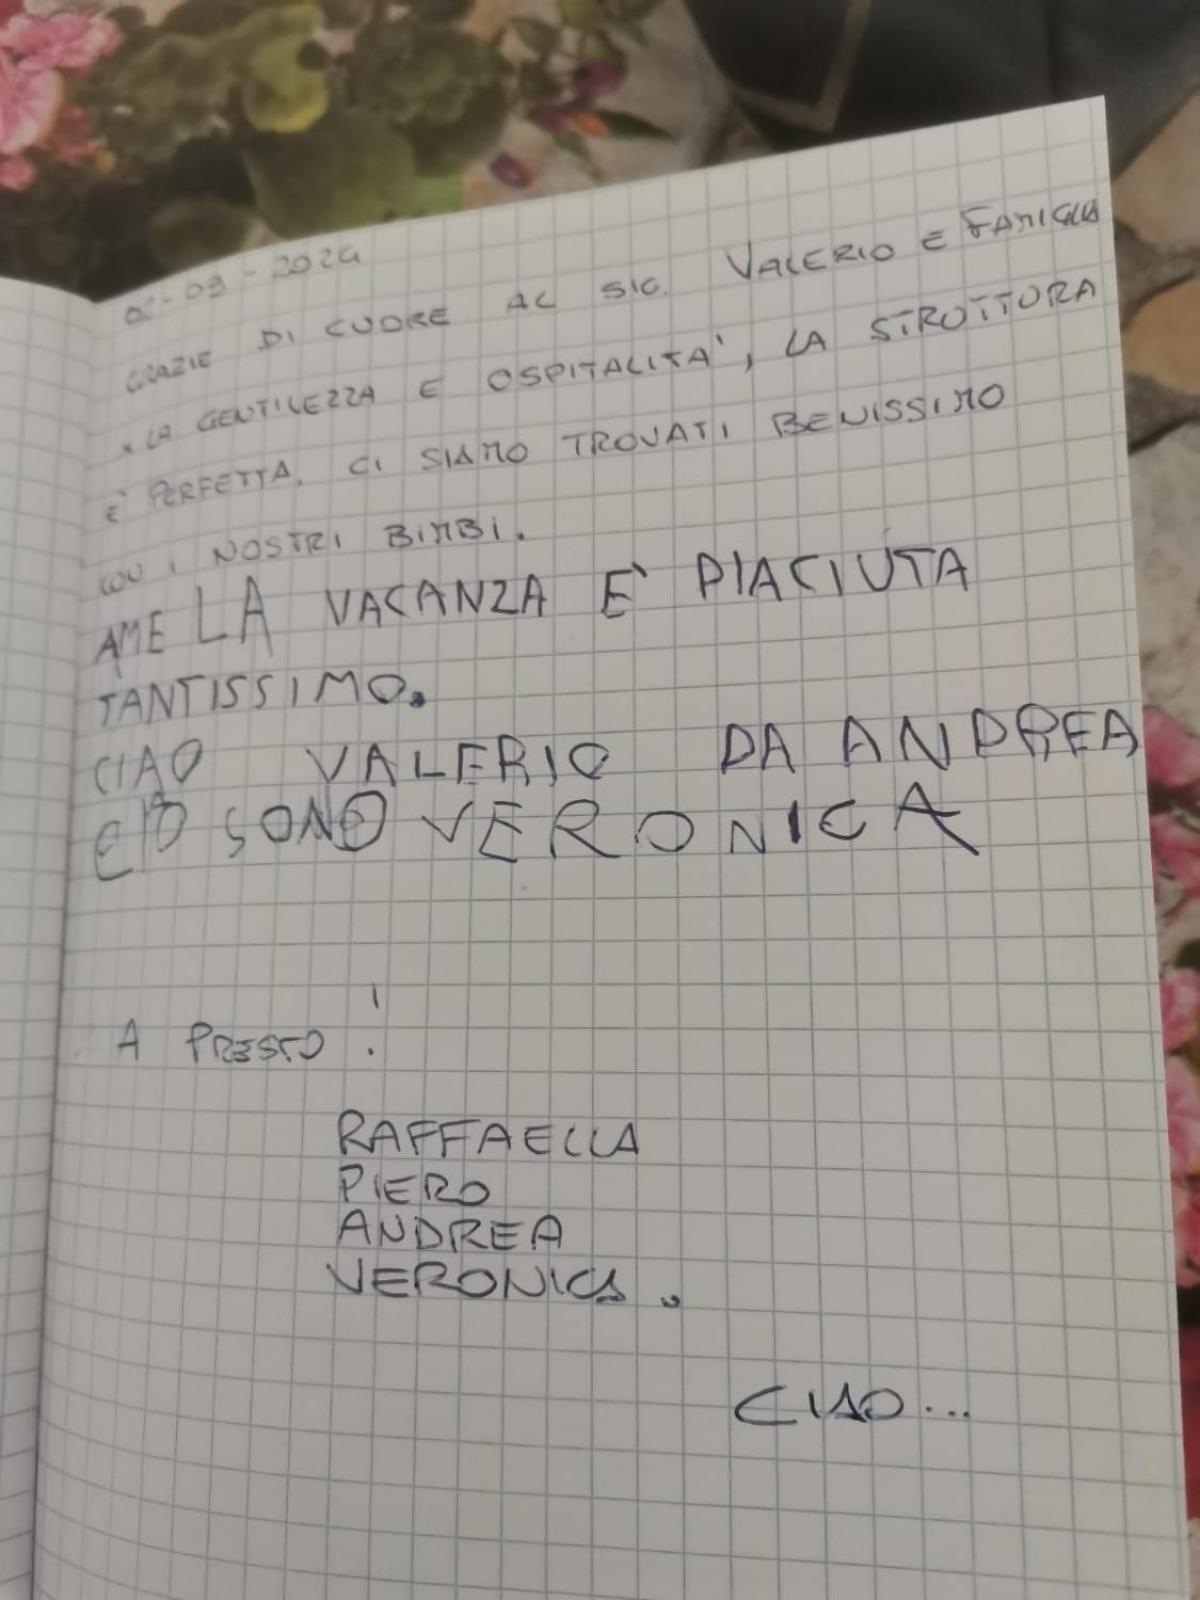 -09-2024
GRAZIE DI CUORE AL SIG. VALERIO E FAMIGLIA
x LA GENTILEZZA E OSPITALITA', LA STRUTTURA
E' PERFETTA. CI SIAMO TROVATI BENISSIMO
CON I NOSTRI BIMBI.
AME LA VACANZA E' PIACIUTA
TANTISSIMO.
CIAO VALERIO DA ANDREA
E IO SONO VERONICA
A PRESTO!
RAFFAELLA
PIERO
ANDREA
VERONICA.
CIAO...